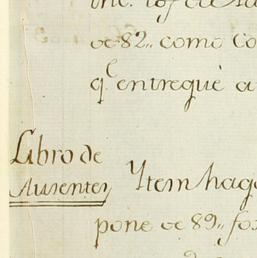 de 82,, como Co
q.^e entregué a
Libro de
Ausentes
Ytem hago
pone de 89,, fox